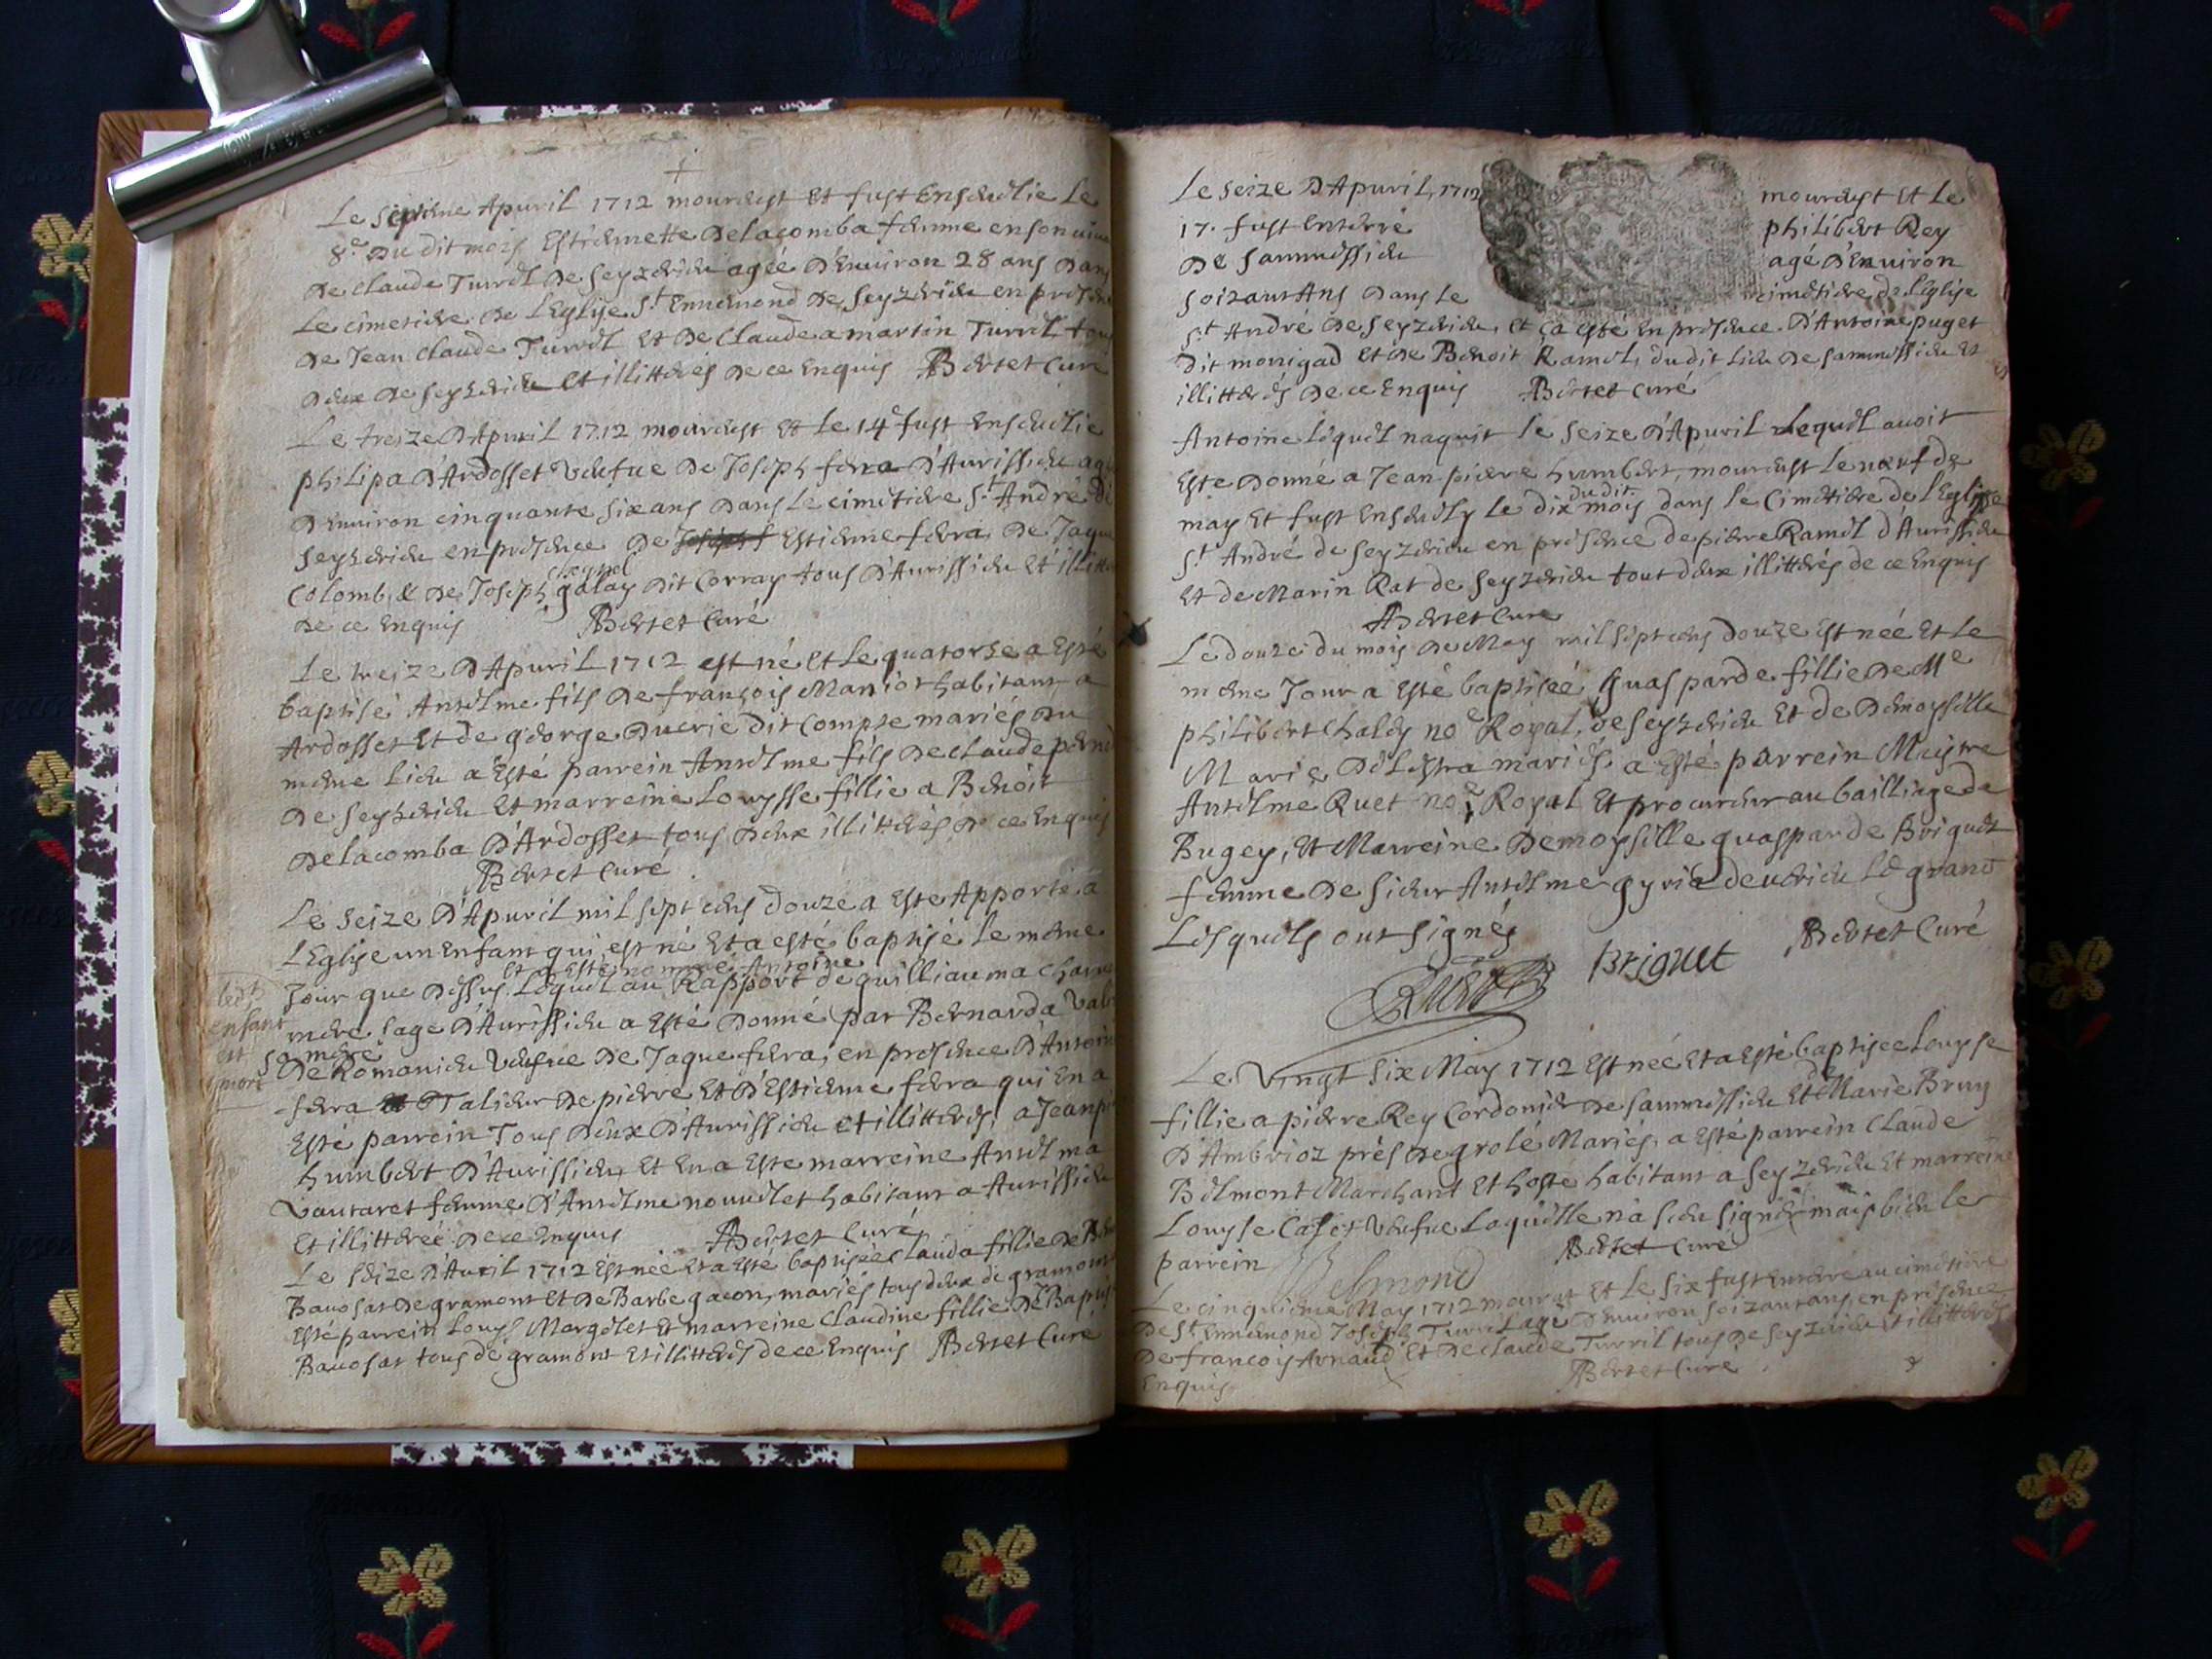 Le septieme Apuril 1712 mourust et fust Enseuelie Le
8e du dit mois Estiennette Delacomba femme en son
de Claude Turrel de Seyzerieu agée d'Enuiron 28 ans dans
Le cimetiere de LEglise St Ennemond de Seyzerieu en
de Jean Claude Turrel Et de Claude a martin Turrel tous
deux de Seyzerieu Et illitterés de ce Enquis Bertet Curé
Le treize d'Apuril 1712 mourust Et Le 14e fust Enseuelie
philipa d'Ardosset Veufue de Joseph ferra d'Aurissieu
d'Enuiron cinquante six ans dans Le cimetiere St André de
Seyzerieu en presence de Estienne ferra, de
Colomb, & de Joseph galay dit Corray tous d'Aurissieu Et
de ce Enquis Bertet Curé
Le treize d'Apuril 1712 est né et Le quatorse a Esté
baptisé Antelme fils de françois Marjot habitant a
Ardosset Et de george ducrie dit Compte mariés du
meme Lieu a Esté parrein Antelme fils de Claude
de Seyzerieu Et marreine Louysse fillie a Benoit
Delacomba d'Ardosset tous deux illitterés de ce Enquis
Bertet Curé
Le Seize d'Apuril mil sept cens douze a Este Apporté a
LEglise un Enfant qui est né Et a esté baptisé Le meme
et a Esté nommé Antoine
Jour que dessus Lequel au Rapport de guilliauma
ledt
enfant
est
mort
mere sage d'Aurissieu a Esté donné par Bernarda
sa mere
de Romanieu Veufue de Jaque ferra, en presence d'Antoine
ferra Talieur de pierre Et d'Estienne ferra qui En a
Esté parrein Tous deux d'Aurissieu et illitterés, a Jean
humbert d'Aurissieu, Et En a Este marreine Antelma
Vautaret femme d'Antelme nouuellet habitant a Aurissieu
Et illitterée de ce Enquis Bertet Curé
Le seize d'Auril 1712 Est née Et a Esté baptisée Clauda fillie de
Bauosat de gramont Et de Barbe gacon, mariés tous deux de gramont
Esté parrein Louys Margelet Et marreine Claudine fillie de
Bauosat tous de gramont Et illitterés de ce Enquis Bertet Curé
Le Seize d'Apuril, 1712 mourust Et Le
17. fust Enterré philibert Rey
de Sammessieu agé d'Enuiron
soizant Ans dans Le cimetiere de LEglise
St André de Seyzerieu, et ça esté En presence d'Antoine puget
dit monigad et de Benoit Ramel, du dit Lieu de Sammessieu Et
illitterés de ce Enquis Bertet Curé
Antoine Lequel naquit le seize d'Apuril Lequel auoit
Este donné a Jean piere humbert, mourust Le neuf de
du dit
may Et fust Enseuely Le dix mois dans Le Cimetiere de LEglise
St André de Seyzerieu en presence de pierre Ramel d'Aurissieu
Et de Marin Rat de Seyzerieu tout deux illitterés de ce Enquis
Bertet Curé
Le douze du mois de May mil sept cens douze Est née Et Le
meme Jour a Esté baptiseé, guasparde fillie de Me
philibert Chaley noe Royal, de Seyzerieu Et de Demoyselle
Marie mariés, a Esté parrein Maistre
Antelme Ruet noe Royal Et procureur au bailliage de
Bugey, Et Marreine Demoyselle guasparde Briguet
femme de Sieur Antelme de uerieu Le grand
Lesquels ont signés
Ruet Briguet Bertet Curé
Le Vingt six May 1712 Est née Et a Esté baptisee Louyse
fillie a pierre Rey Cordonier de Sammessieu Et de Marie Bruy
d'Ambrioz prés de grolé Mariés, a Esté parrein Claude
Belmont Marchant Et hoste habitant a Seyzerieu Et marreine
Louyse Veufue Laquelle n'a sceu signer mais bien le
parrein Belmond Bertet Curé
Le cinquieme May 1712 mourut Et Le six fust enterré au cimetiere
de St Ennemond Joseph Turrel agé d'Enuiron soizant ans, en presence
de françois Arnaud Et de Claude Turril tous de Seyzerieu Et illitterés
Enquis Bertet Curé